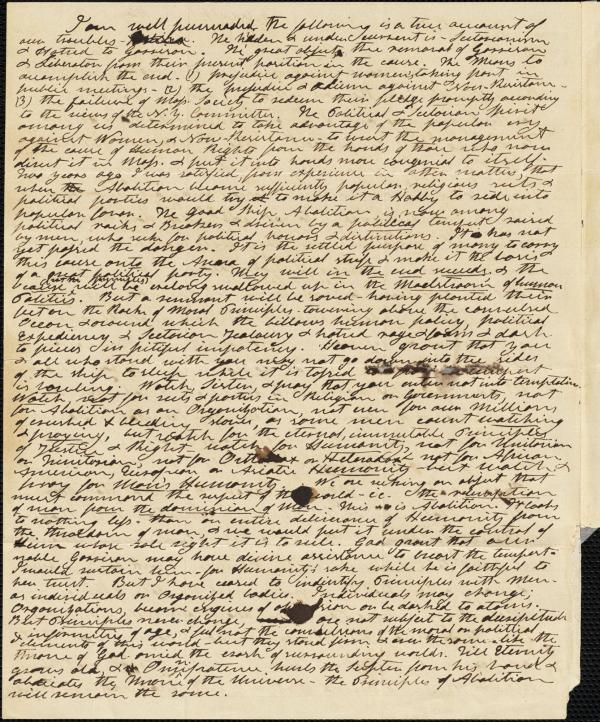 I am well persuaded the following is a true account of
our troubles. The hidden & under current is - Sectarianism
& Hatred to Garrison. The great object the removal of Garrison
& Liberator from their present position in the cause. The Means to
accomplish the end - (1) prejudice against women, taking part in
public meetings - (2) the prejudice & odium against Non-Resistance -
(3) the failure of Mass. Society to redeem their pledge promptly according
to the views of the N.Y. Committee. The Political & Sectarian Spirit
among us determined to take advantage of the popular cry
against Women, & Non-Resistance - to wrest the management
of the cause of Human Rights from the hands of those who now
direct it in Mass. & put it into hands more congenial to itself.
Two years ago I was satisfied, from experience in other matters, that
when the Abolition became sufficiently popular, religious sects &
political parties would try to make it a Hobby to ride into
popular favor. The good Ship, Abolition, is now among
political rocks & Breakers & driven by a political tempest raised
by men, who seek for political honors & distinctions. It has not
yet passed the danger. It is the settled purpose of many to carry
this cause onto the Arena of political strife & make it the basis
of a great political party. They will in the end succeed & the
cause will be swallowed up in the Maelstroom of human
Politics. But a remnant will be saved - having planted their
feet on the Rock of Moral Principles - towering above the convulsed
Ocean & around which the billows human policy, political
Expediency, & Sectarian Jealousy & hatred rage & foam & dash
to pieces in pitiful impotency. Heaven grant that you
& all who stand with you may not go down into the sides
of the ship to sleep while it is topsid
is howling. Watch, Sister, & pray that you enter not into temptation
Watch, not for sects & parties in Religion or Governments, not
for Abolition as an Organization, not even for our Millions
of crushed & bleeding Slaves, as some men count watching
& praying, but watch for the eternal, immutable Principles
of Justice & Right - watch for Humanity, not for Unitarian
or Trinitarian, not for Orthodox or Heterodox - not for African
American, European or Asiatic Humanity - but watch &
pray for Man's Humanity. We are urging an object that
must command the respect of the world - ee. The redemption
of man from the dominion of Man. This is Abolition. It looks
to nothing less than an entire deliverance of Humanity from
the thraldom of man & we would put it under the control of
Him whose sole right it is to rule. God grant that our
noble Garrison may have divine assistance to breast the tempest.
I would sustain him - for Humanity's sake while he is faithful to
her trust. But I have ceased to indentify Principles with Men -
as individuals or Organized bodies. Individuals may change;
Organizations, become engines of or be dashed to atoms.
But Principles never change, are not subject to the decrepitude
& infirmities of age, & feel not the convulsions of the moral or political
elements of this world - but they stand firm & ever the same like the
throne of God amid the crash of surrounding worlds. Till Eternity
grows old, & Omnipotence hurls the scepter from his hand &
abdicates the throne of the Universe - the Principles of Abolition
will remain the same.